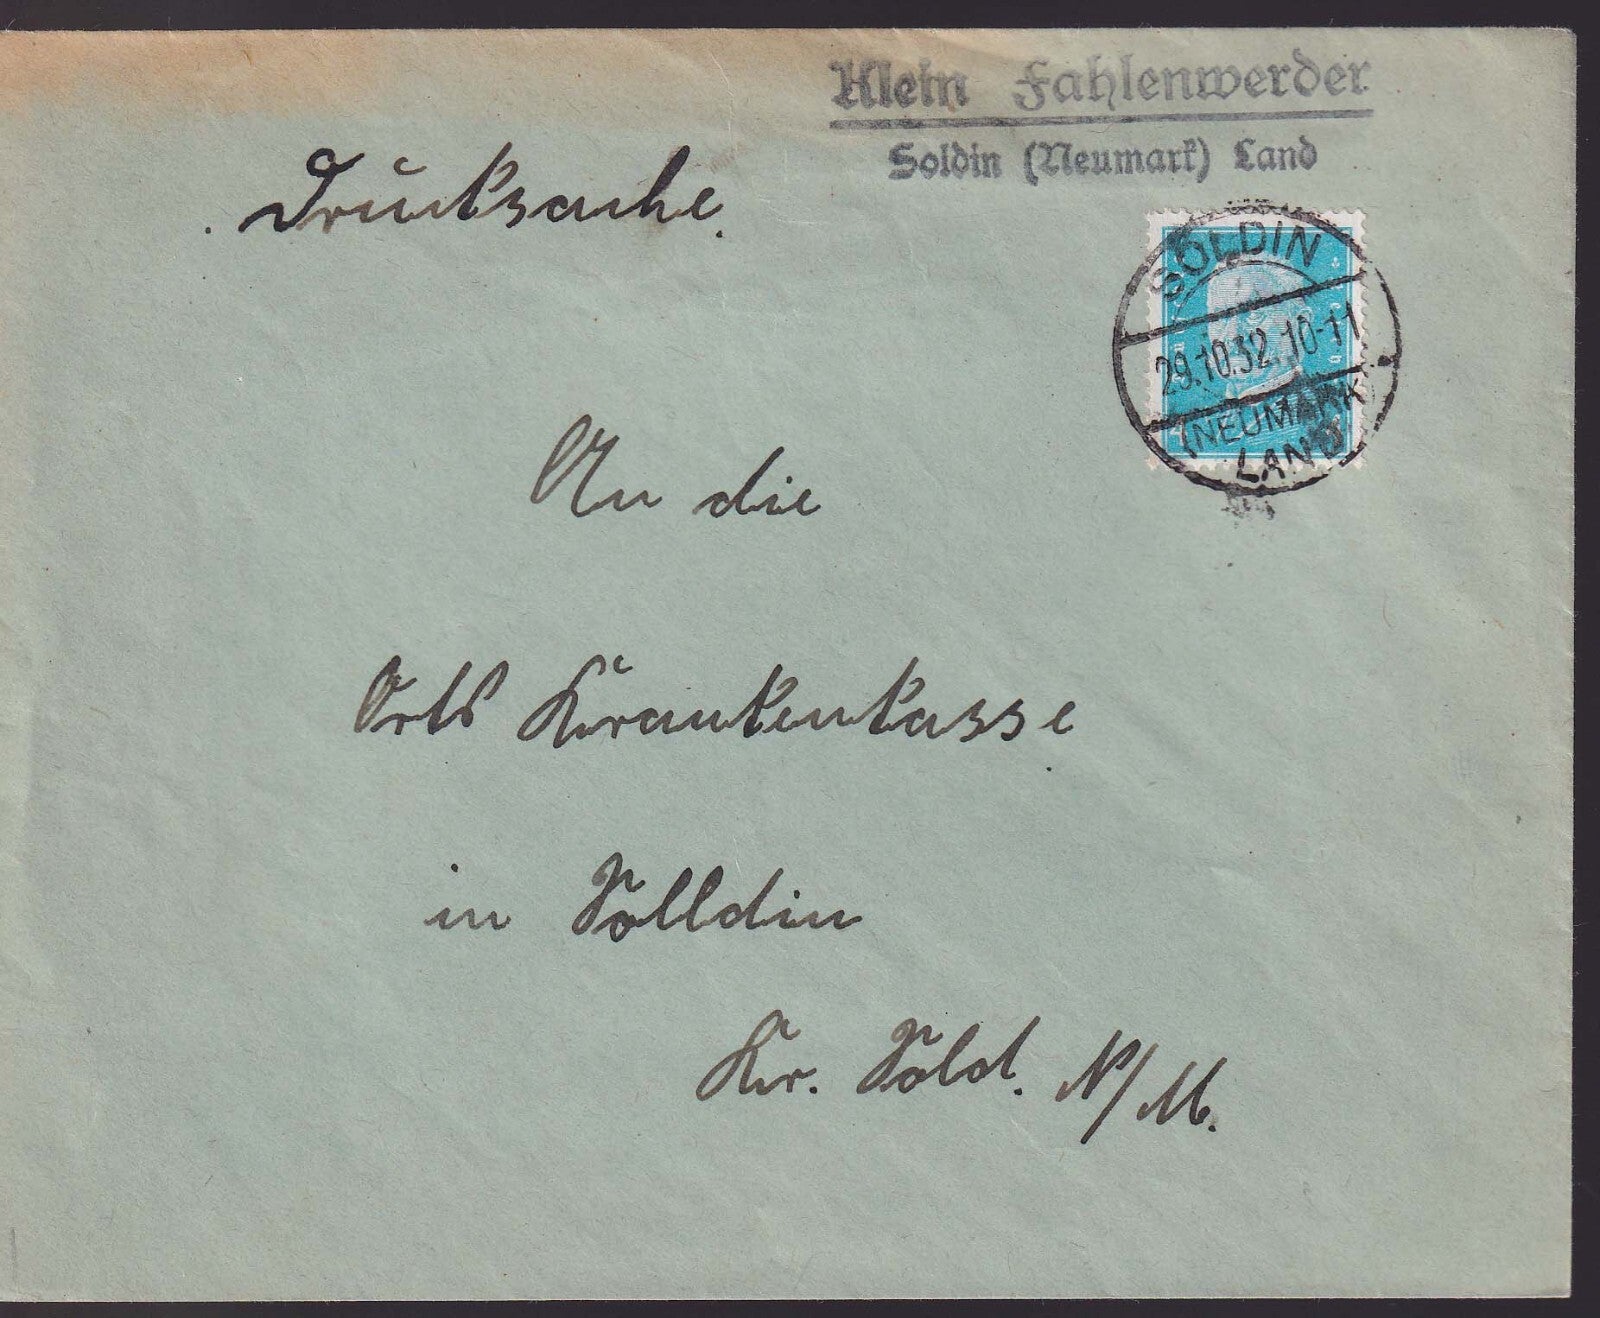 Klein Fahlenwerder
Soldin (Neumark) Land
Drucksache.
SOLDIN
29.10.32. 10-11
(NEUMARK)
LAND
An die
Orts Krankenkasse
in Solldin
Kr. Sold. N/M.